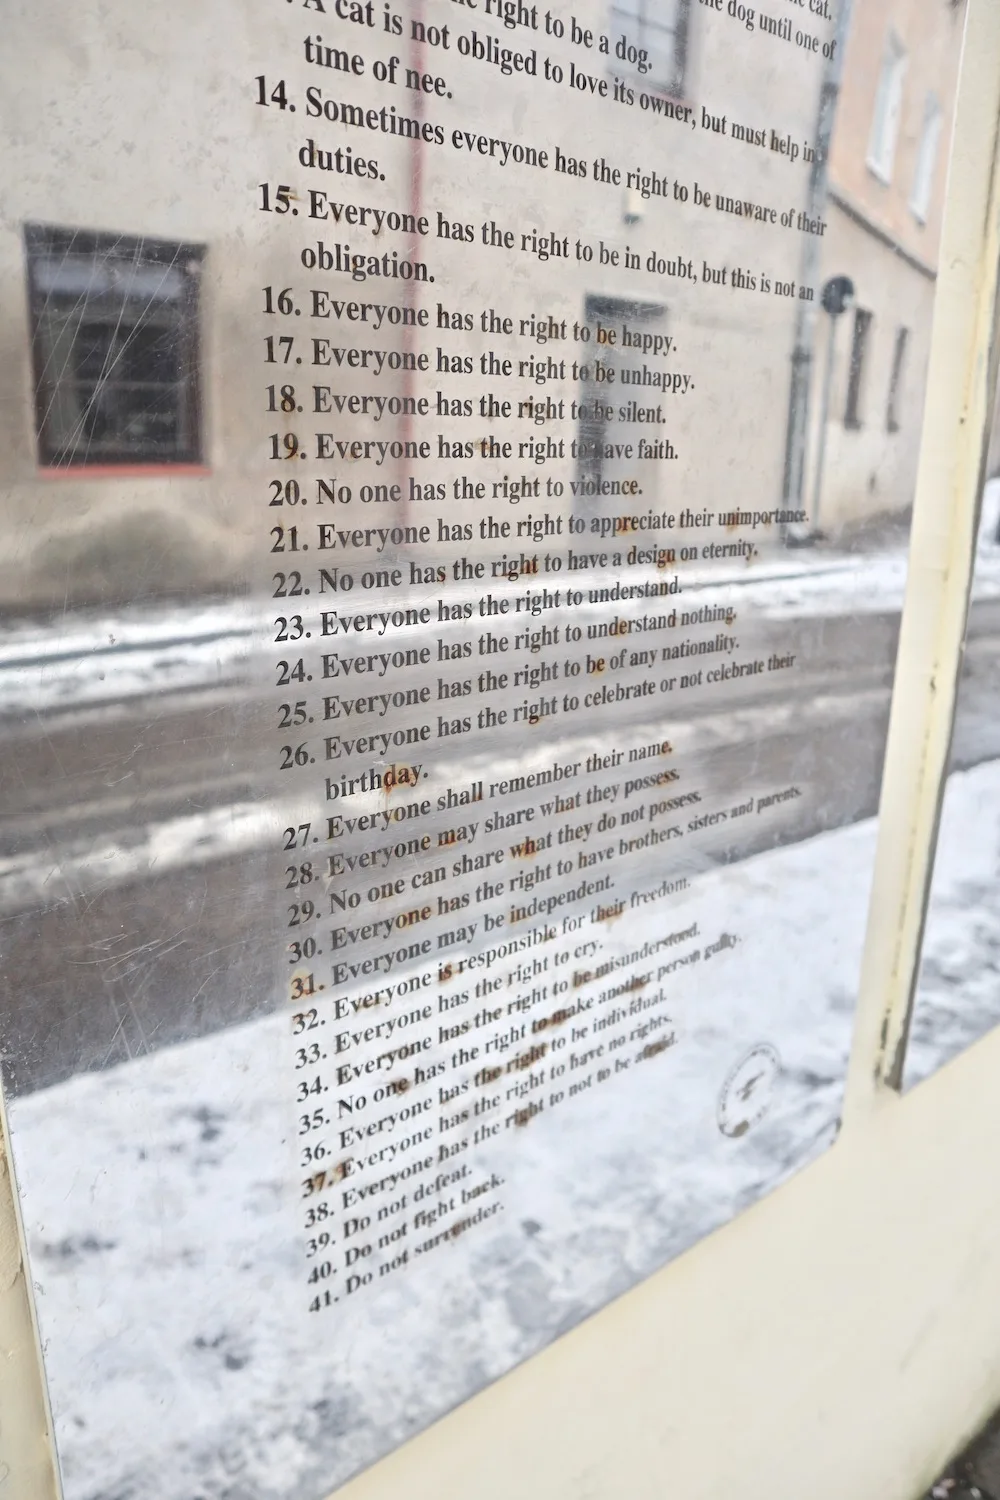 cat.
the dog until one of
right to be a dog.
A cat is not obliged to love its owner, but must help in
time of nee.
14. Sometimes everyone has the right to be unaware of their
duties.
15. Everyone has the right to be in doubt, but this is not an
obligation.
16. Everyone has the right to be happy.
17. Everyone has the right to be unhappy.
18. Everyone has the right to be silent.
19. Everyone has the right to have faith.
20. No one has the right to violence.
21. Everyone has the right to appreciate their unimportance.
22. No one has the right to have a design on eternity.
23. Everyone has the right to understand.
24. Everyone has the right to understand nothing.
25. Everyone has the right to be of any nationality.
26. Everyone has the right to celebrate or not celebrate their
birthday.
27. Everyone shall remember their name.
28. Everyone may share what they possess.
29. No one can share what they do not possess.
30. Everyone has the right to have brothers, sisters and parents.
31. Everyone may be independent.
32. Everyone is responsible for their freedom.
33. Everyone has the right to cry.
34. Everyone has the right to be misunderstood.
35. No one has the right to make another person guilty.
36. Everyone has the right to be individual.
37. Everyone has the right to have no rights.
38. Everyone has the right to not to be afraid.
39. Do not defeat.
40. Do not fight back.
41. Do not surrender.